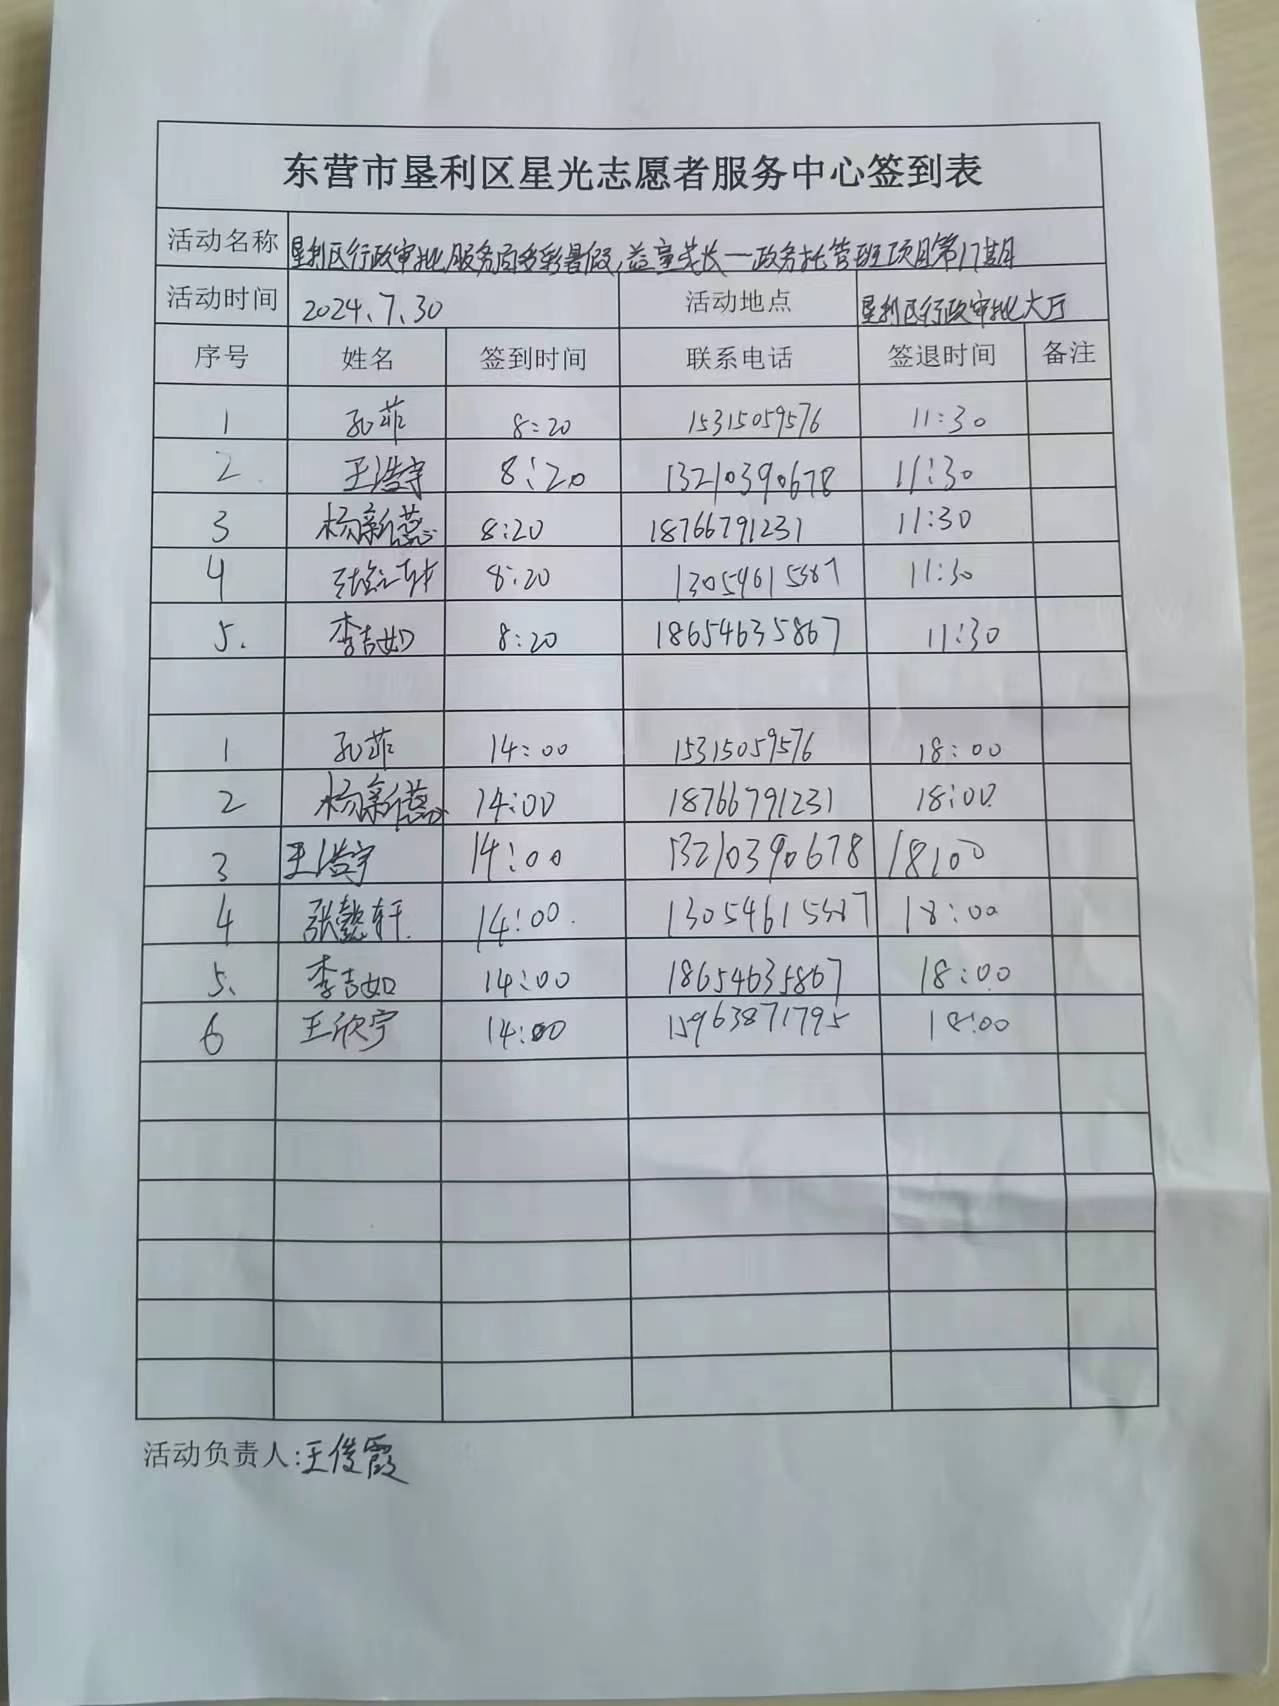 东营市垦利区星光志愿者服务中心签到表
活动名称 垦利区行政审批服务局多彩暑假,益童成长一政务托管班项目第17期
活动时间 2024、7、30 活动地点 垦利区行政审批大厅
序号 姓名 签到时间 联系电话 签退时间 备注
1 孔菲 8:20 15315059576 11:30
2 王浩宇 8:20 13210390678 11:30
3 杨新蕊 8:20 18766791231 11:30
4 张懿轩 8:20 13054615387 11:30
5. 李吉如 8:20 18654635867 11:30
1 孔菲 14:00 15315059576 18:00
2 杨新蕊 14:00 18766791231 18:00
3 王浩宇 14:00 13210390678 18:00
4 张懿轩 14:00. 13054615387 18:00
5、 李吉如 14:00 18654635867 18:00
6 王欣宁 14:00 15963871795 18:00
活动负责人:王俊霞